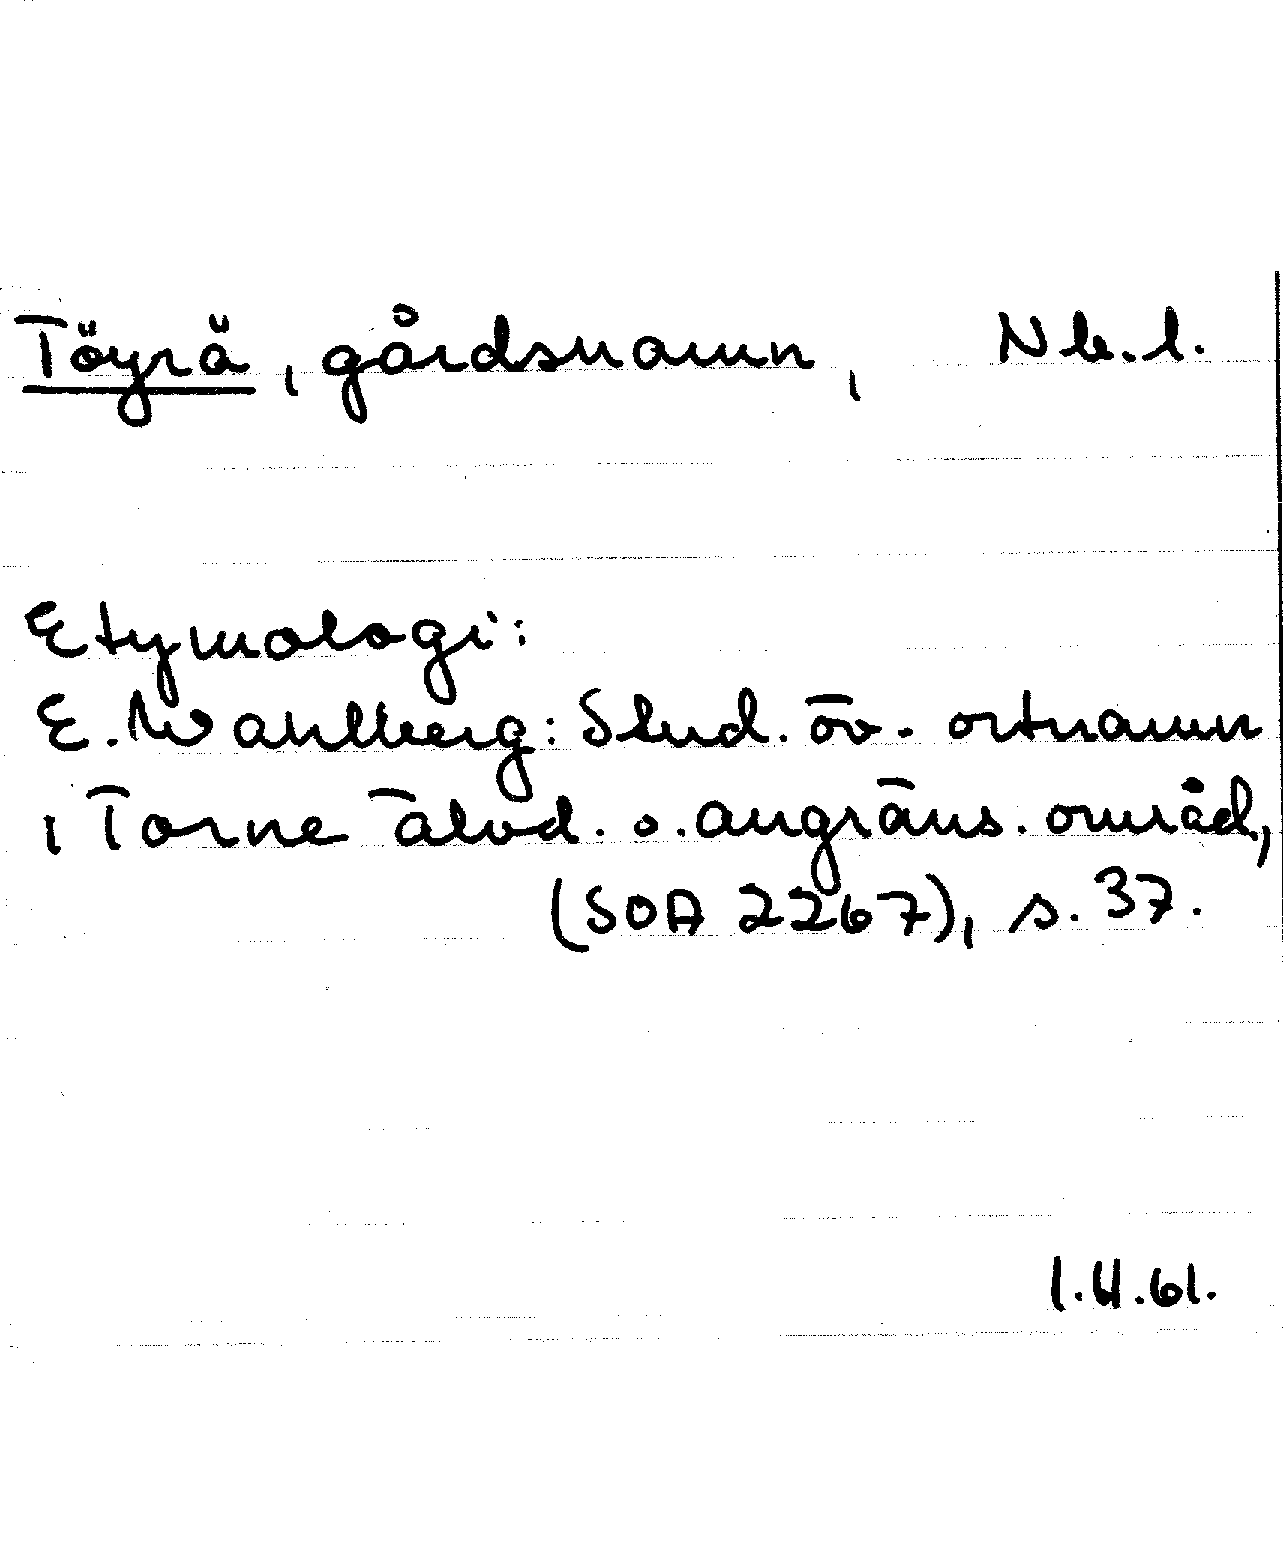 Töyrä, gårdsnamn, Nb. l.
Etymologi:
E. Wahlberg: Stud. öv. ortnamn
i Torne älvd. o. angräns. områd,
(SOA 2267), s. 37.
1.4.61.